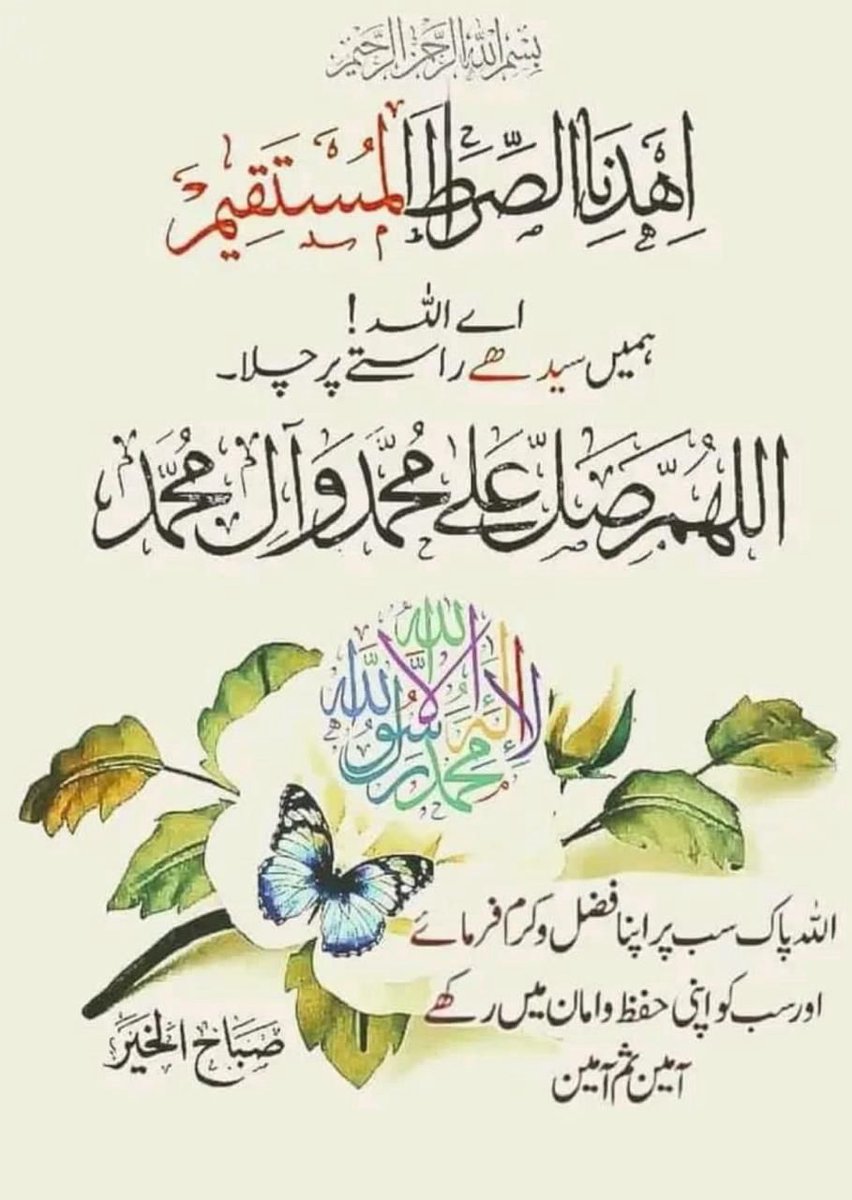 بِسْمِ اللهِ الرَّحْمٰنِ الرَّحِيْمِ
اِهْدِنَا الصِّرَاطَ الْمُسْتَقِيْمَ
اے اللہ !
ہمیں سیدھے راستے پر چلا۔
اللهُمَّ صَلِّ عَلىٰ مُحَمَّدٍ وَآلِ مُحَمَّدٍ
لَا اِلٰهَ اِلَّا اللهُ مُحَمَّدٌ رَسُوْلُ اللهِ
اللہ پاک سب پر اپنا فضل و کرم فرمائے
اور سب کو اپنی حفظ و امان میں رکھے
آمین ثم آمین
صَبَاحُ الخَيْر